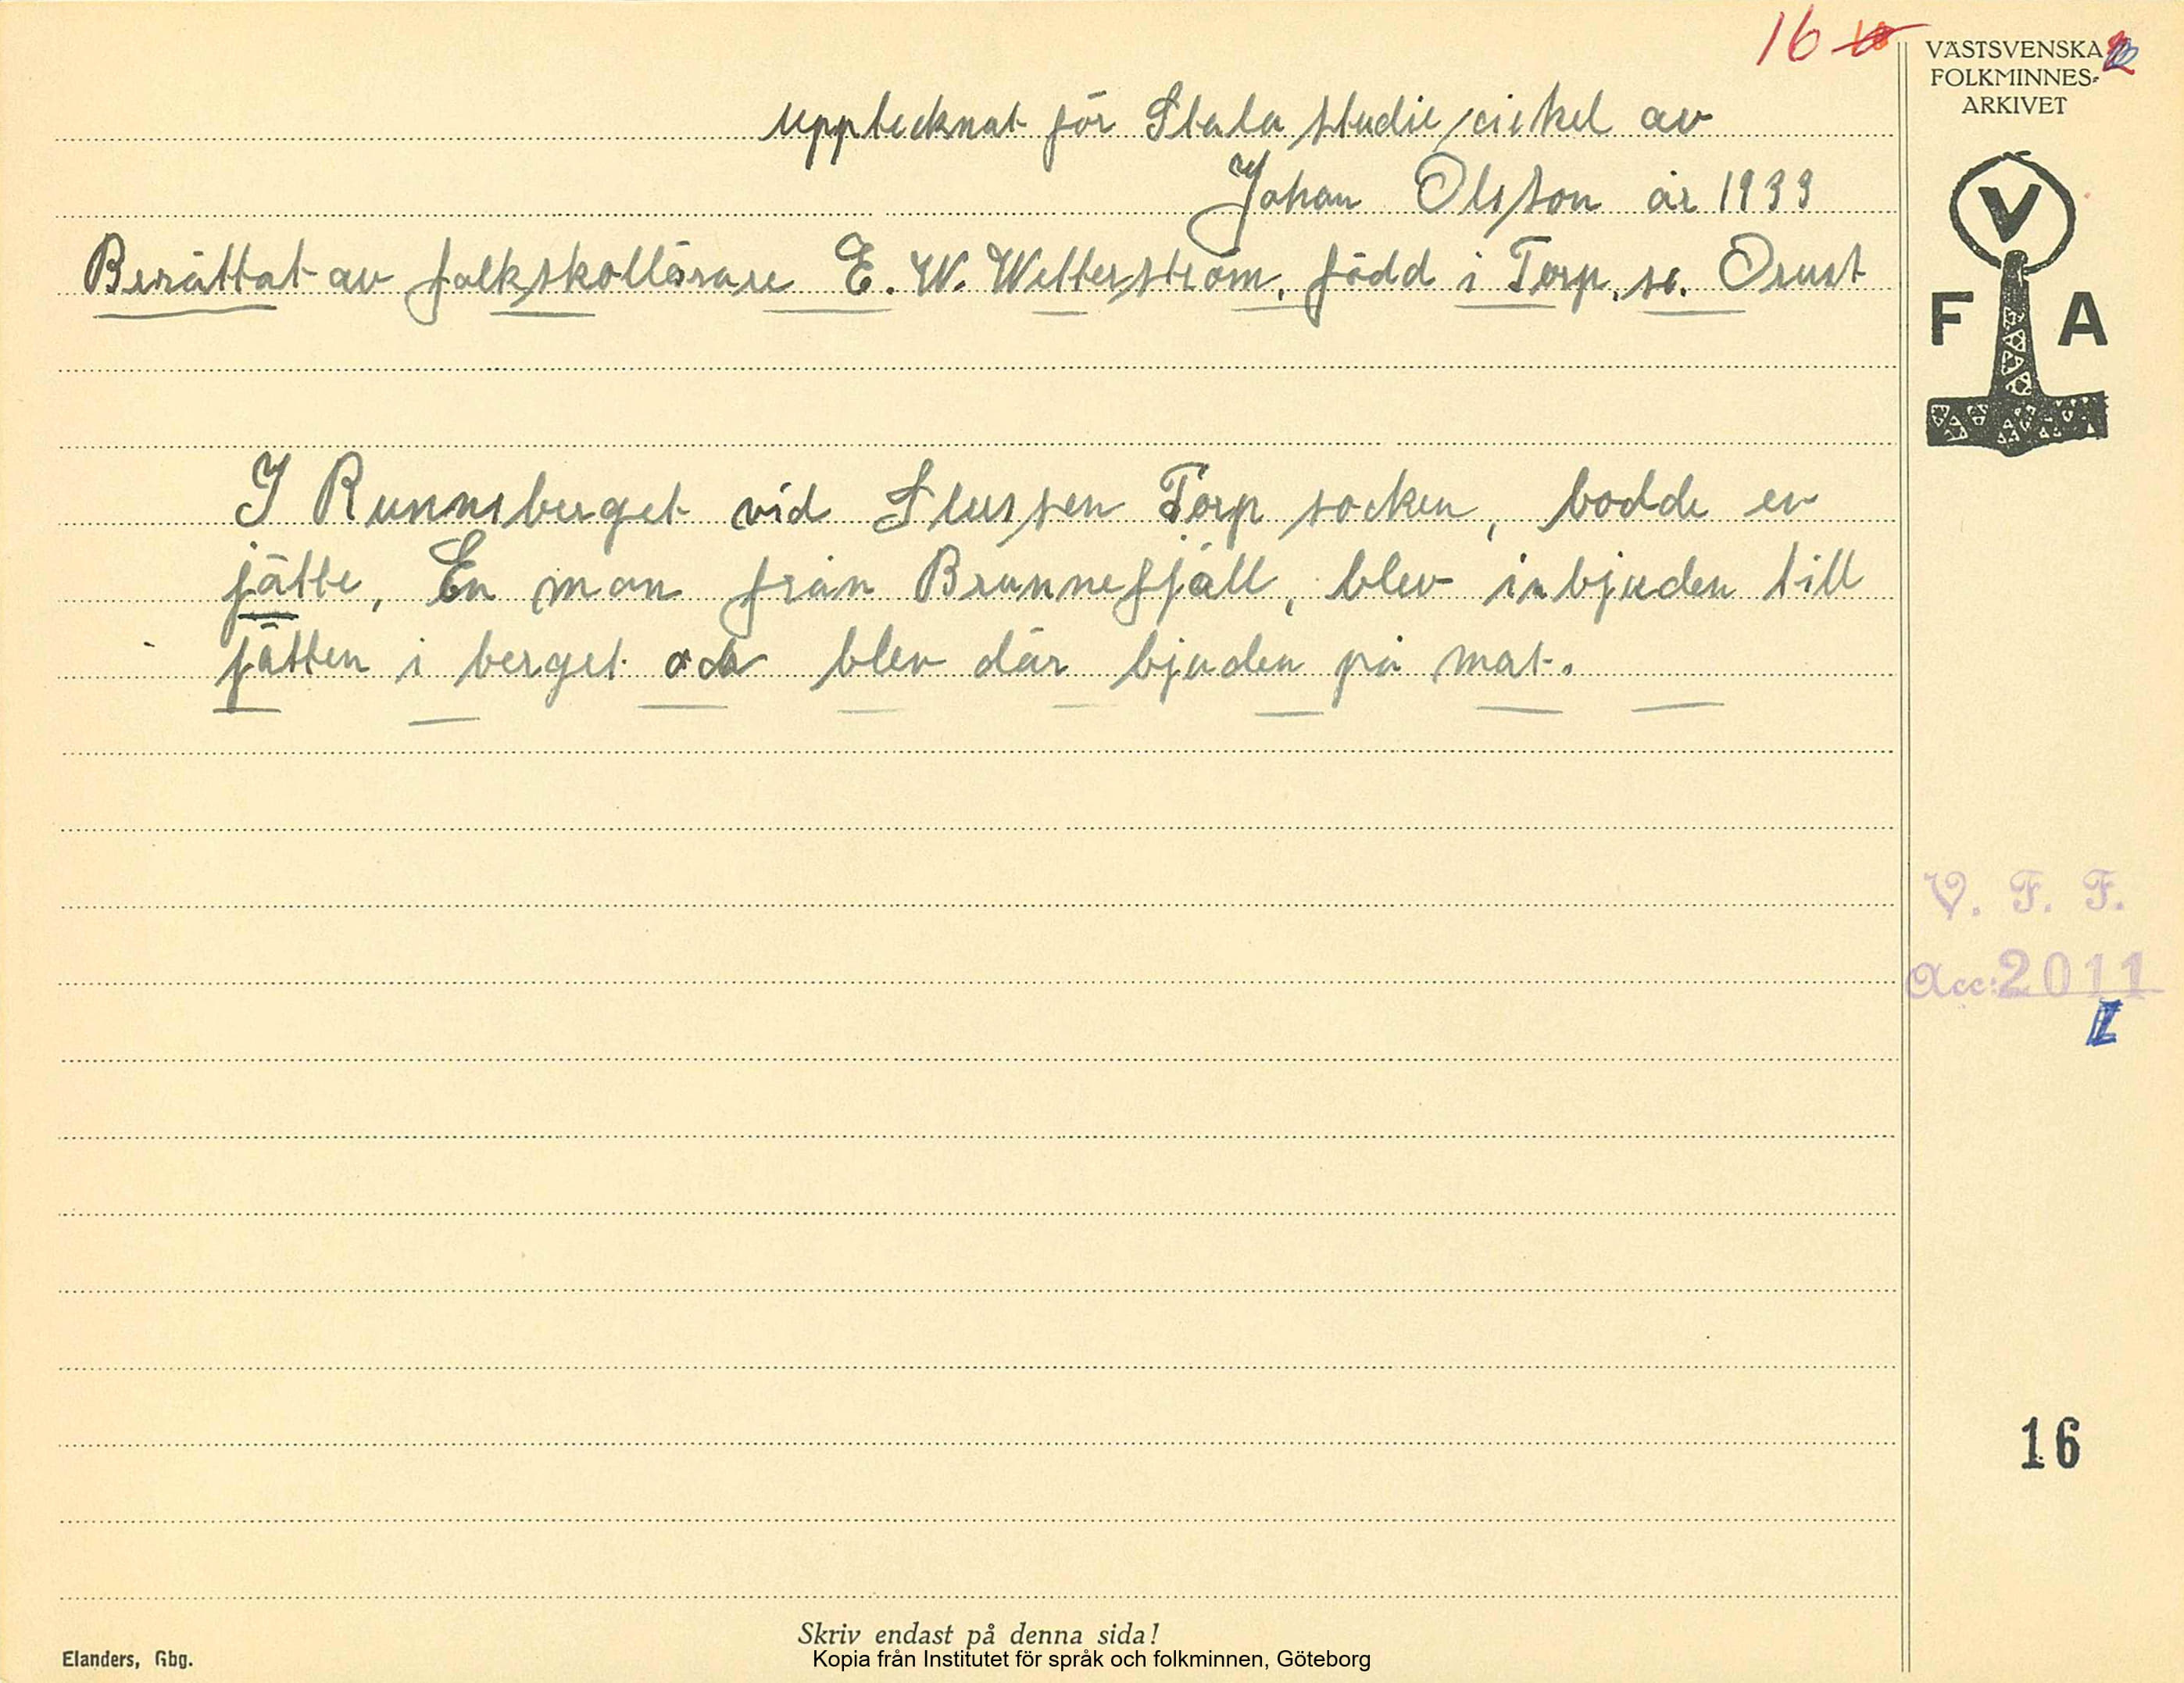 16
VÄSTSVENSKA
FOLKMINNES-
ARKIVET
Upptecknat för Stala studiecirkel av
Johan Olsson år 1933
Berättat av folkskollärare E. W. Wetterström, född i Torp, sn. Orust
V
F A
I Runnsberget vid Slussen Torp socken, bodde en
jätte, En man från Brunnefjäll, blev inbjuden till
jätten i berget och blev där bjuden på mat.
V. F. F.
Acc: 2011
16
Skriv endast på denna sida!
Elanders, Gbg.
Kopia från Institutet för språk och folkminnen, Göteborg